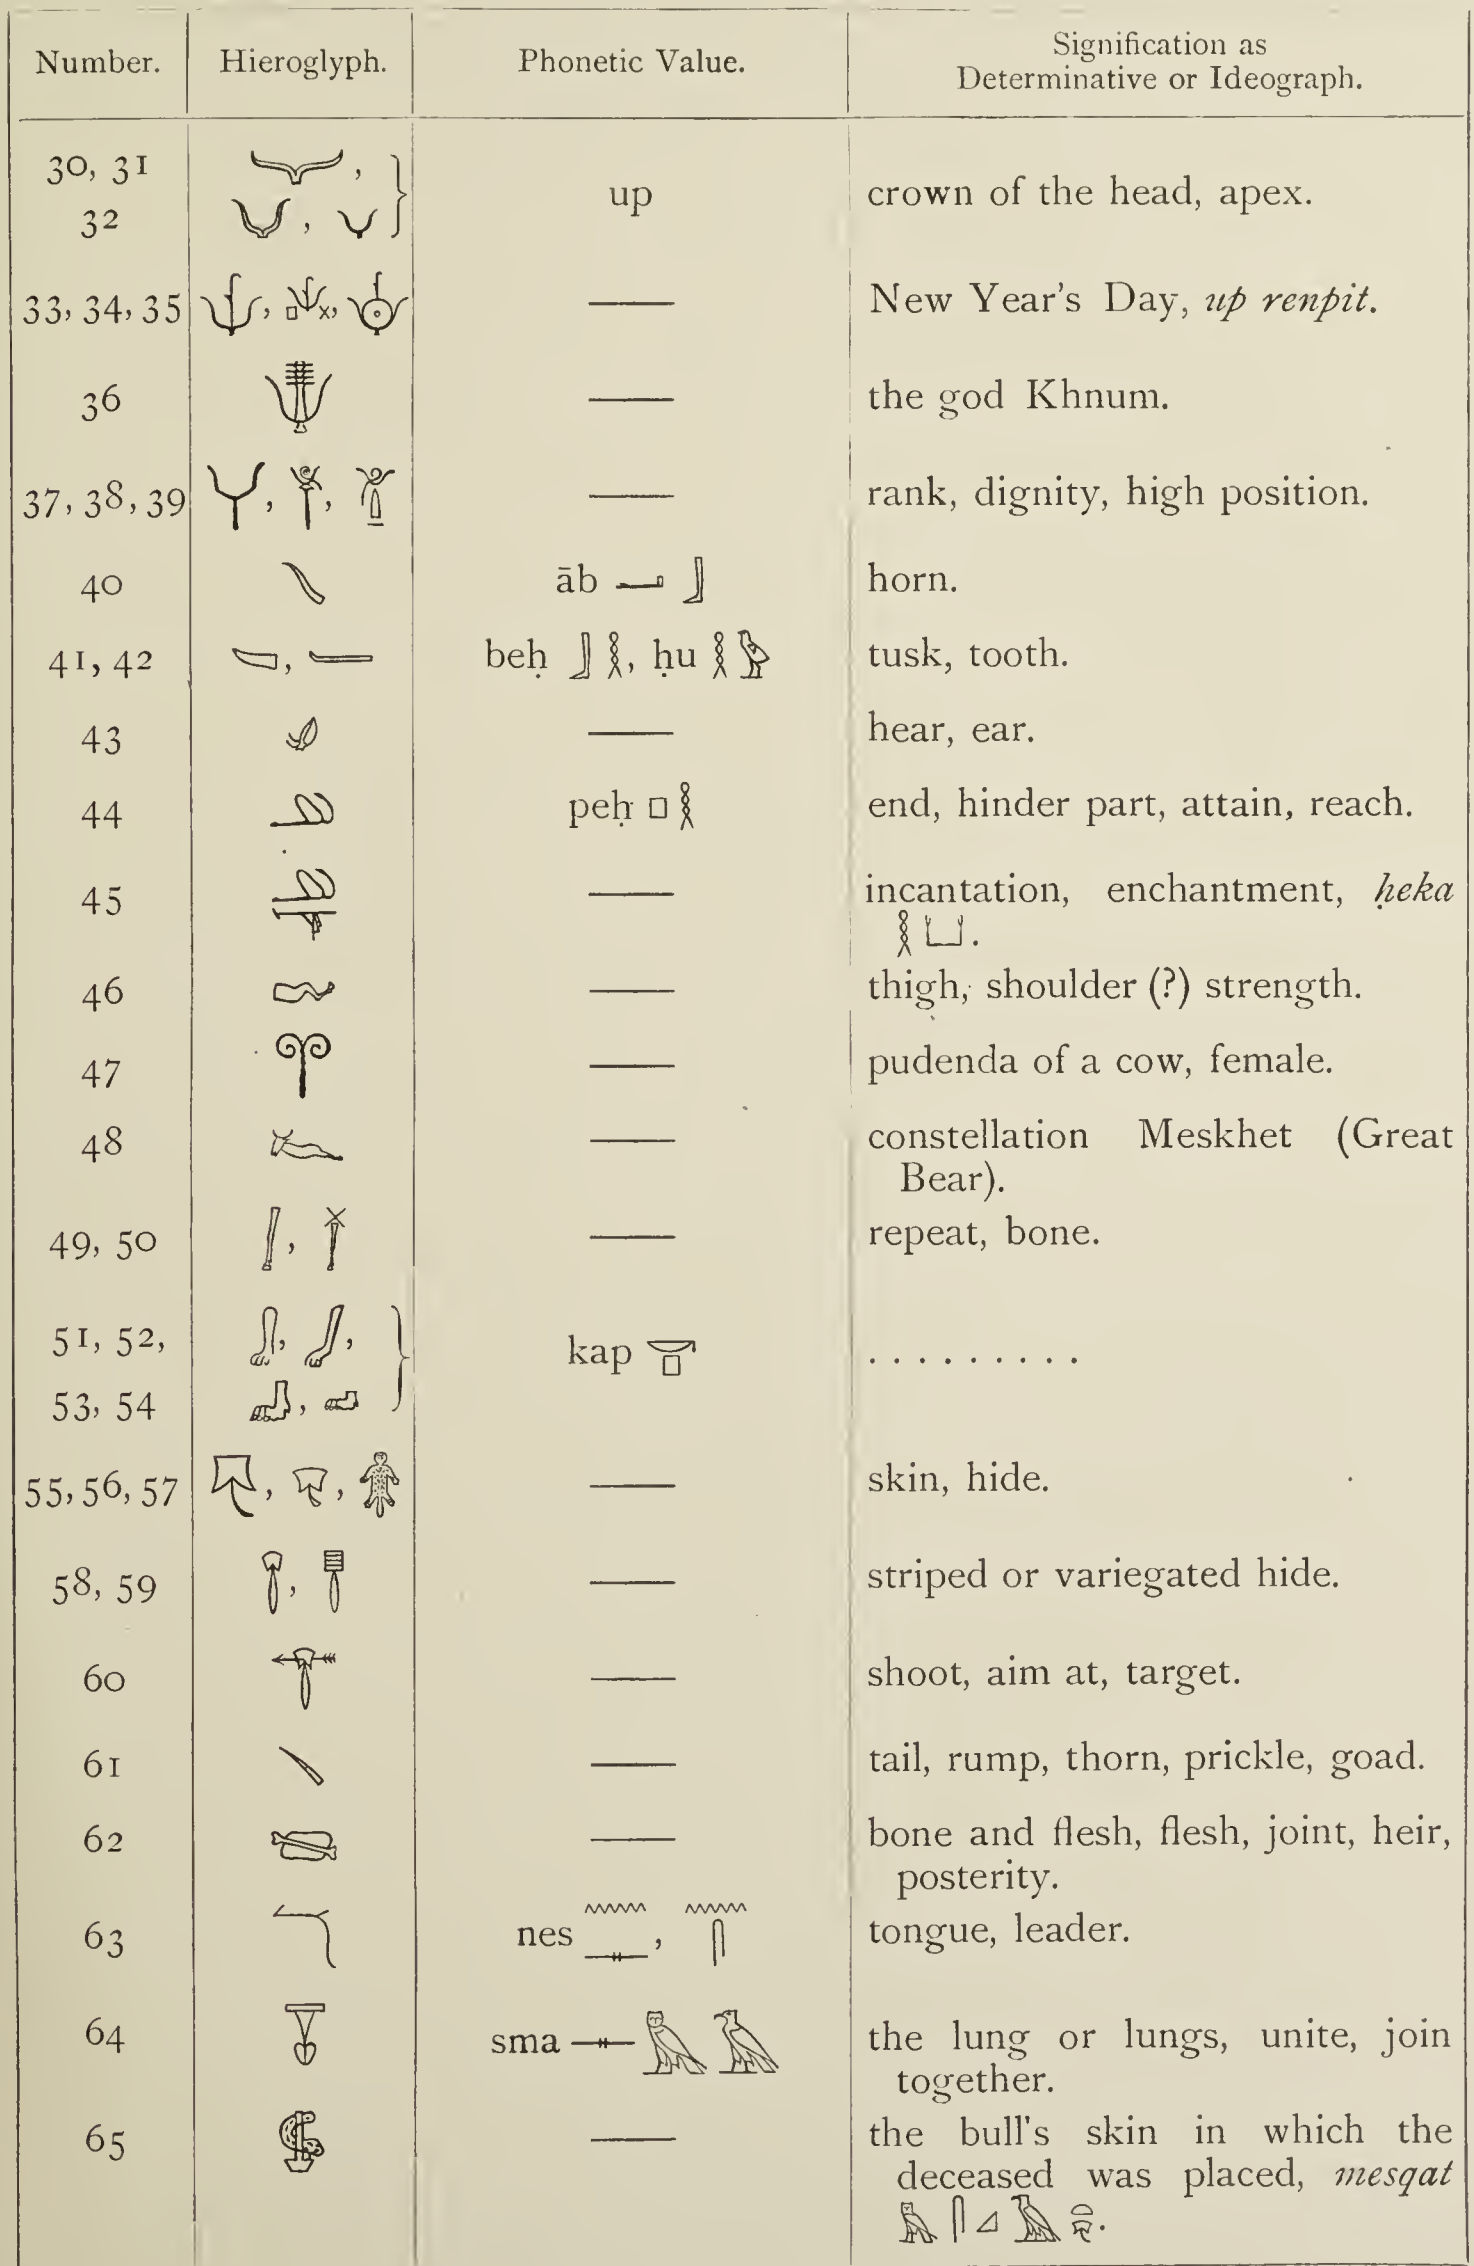 Number. Hieroglyph. Phonetic Value. Signification as
Determinative or Ideograph.
30, 31
32 up crown of the head, apex.
33, 34, 35 — New Year's Day, up renpit.
36 — the god Khnum.
37, 38, 39 — rank, dignity, high position.
40 āb horn.
41, 42 beḥ , ḥu tusk, tooth.
43 — hear, ear.
44 peḥ end, hinder part, attain, reach.
45 — incantation, enchantment, ḥeka
46 — thigh, shoulder (?) strength.
47 — pudenda of a cow, female.
48 — constellation Meskhet (Great
Bear).
49, 50 — repeat, bone.
51, 52,
53, 54 kap . . . . . . . . .
55, 56, 57 — skin, hide.
58, 59 — striped or variegated hide.
60 — shoot, aim at, target.
61 — tail, rump, thorn, prickle, goad.
62 — bone and flesh, flesh, joint, heir,
posterity.
63 nes tongue, leader.
64 sma the lung or lungs, unite, join
together.
65 — the bull's skin in which the
deceased was placed, mesqat